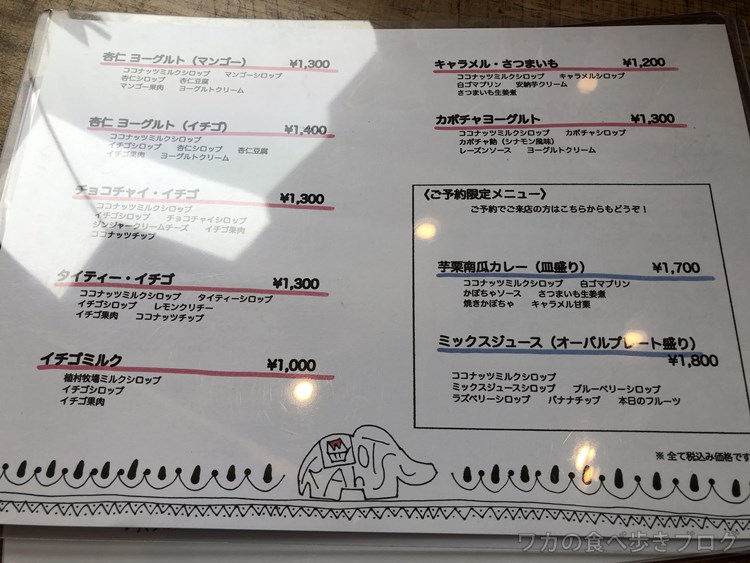 杏仁 ヨーグルト（マンゴー） ¥1,300
ココナッツミルクシロップ マンゴーシロップ
杏仁シロップ 杏仁豆腐
マンゴー果肉 ヨーグルトクリーム
杏仁 ヨーグルト（イチゴ） ¥1,400
ココナッツミルクシロップ
イチゴシロップ 杏仁シロップ 杏仁豆腐
イチゴ果肉 ヨーグルトクリーム
チョコチャイ・イチゴ ¥1,300
ココナッツミルクシロップ
イチゴシロップ チョコチャイシロップ
ジンジャークリームチーズ イチゴ果肉
ココナッツチップ
タイティー・イチゴ ¥1,300
ココナッツミルクシロップ タイティーシロップ
イチゴシロップ レモンクリチー
イチゴ果肉 ココナッツチップ
イチゴミルク ¥1,000
植村牧場ミルクシロップ
イチゴシロップ
イチゴ果肉
キャラメル・さつまいも ¥1,200
ココナッツミルクシロップ キャラメルシロップ
白ゴマプリン 安納芋クリーム
さつまいも生姜煮
カボチャヨーグルト ¥1,300
ココナッツミルクシロップ カボチャシロップ
カボチャ飴（シナモン風味）
レーズンソース ヨーグルトクリーム
〈ご予約限定メニュー〉
ご予約でご来店の方はこちらからもどうぞ！
芋栗南瓜カレー（皿盛り） ¥1,700
ココナッツミルクシロップ 白ゴマプリン
かぼちゃソース さつまいも生姜煮
焼きかぼちゃ キャラメル甘栗
ミックスジュース（オーバルプレート盛り）
¥1,800
ココナッツミルクシロップ
ミックスジュースシロップ ブルーベリーシロップ
ラズベリーシロップ バナナチップ 本日のフルーツ
※ 全て税込み価格です
ワカの食べ歩きブログ